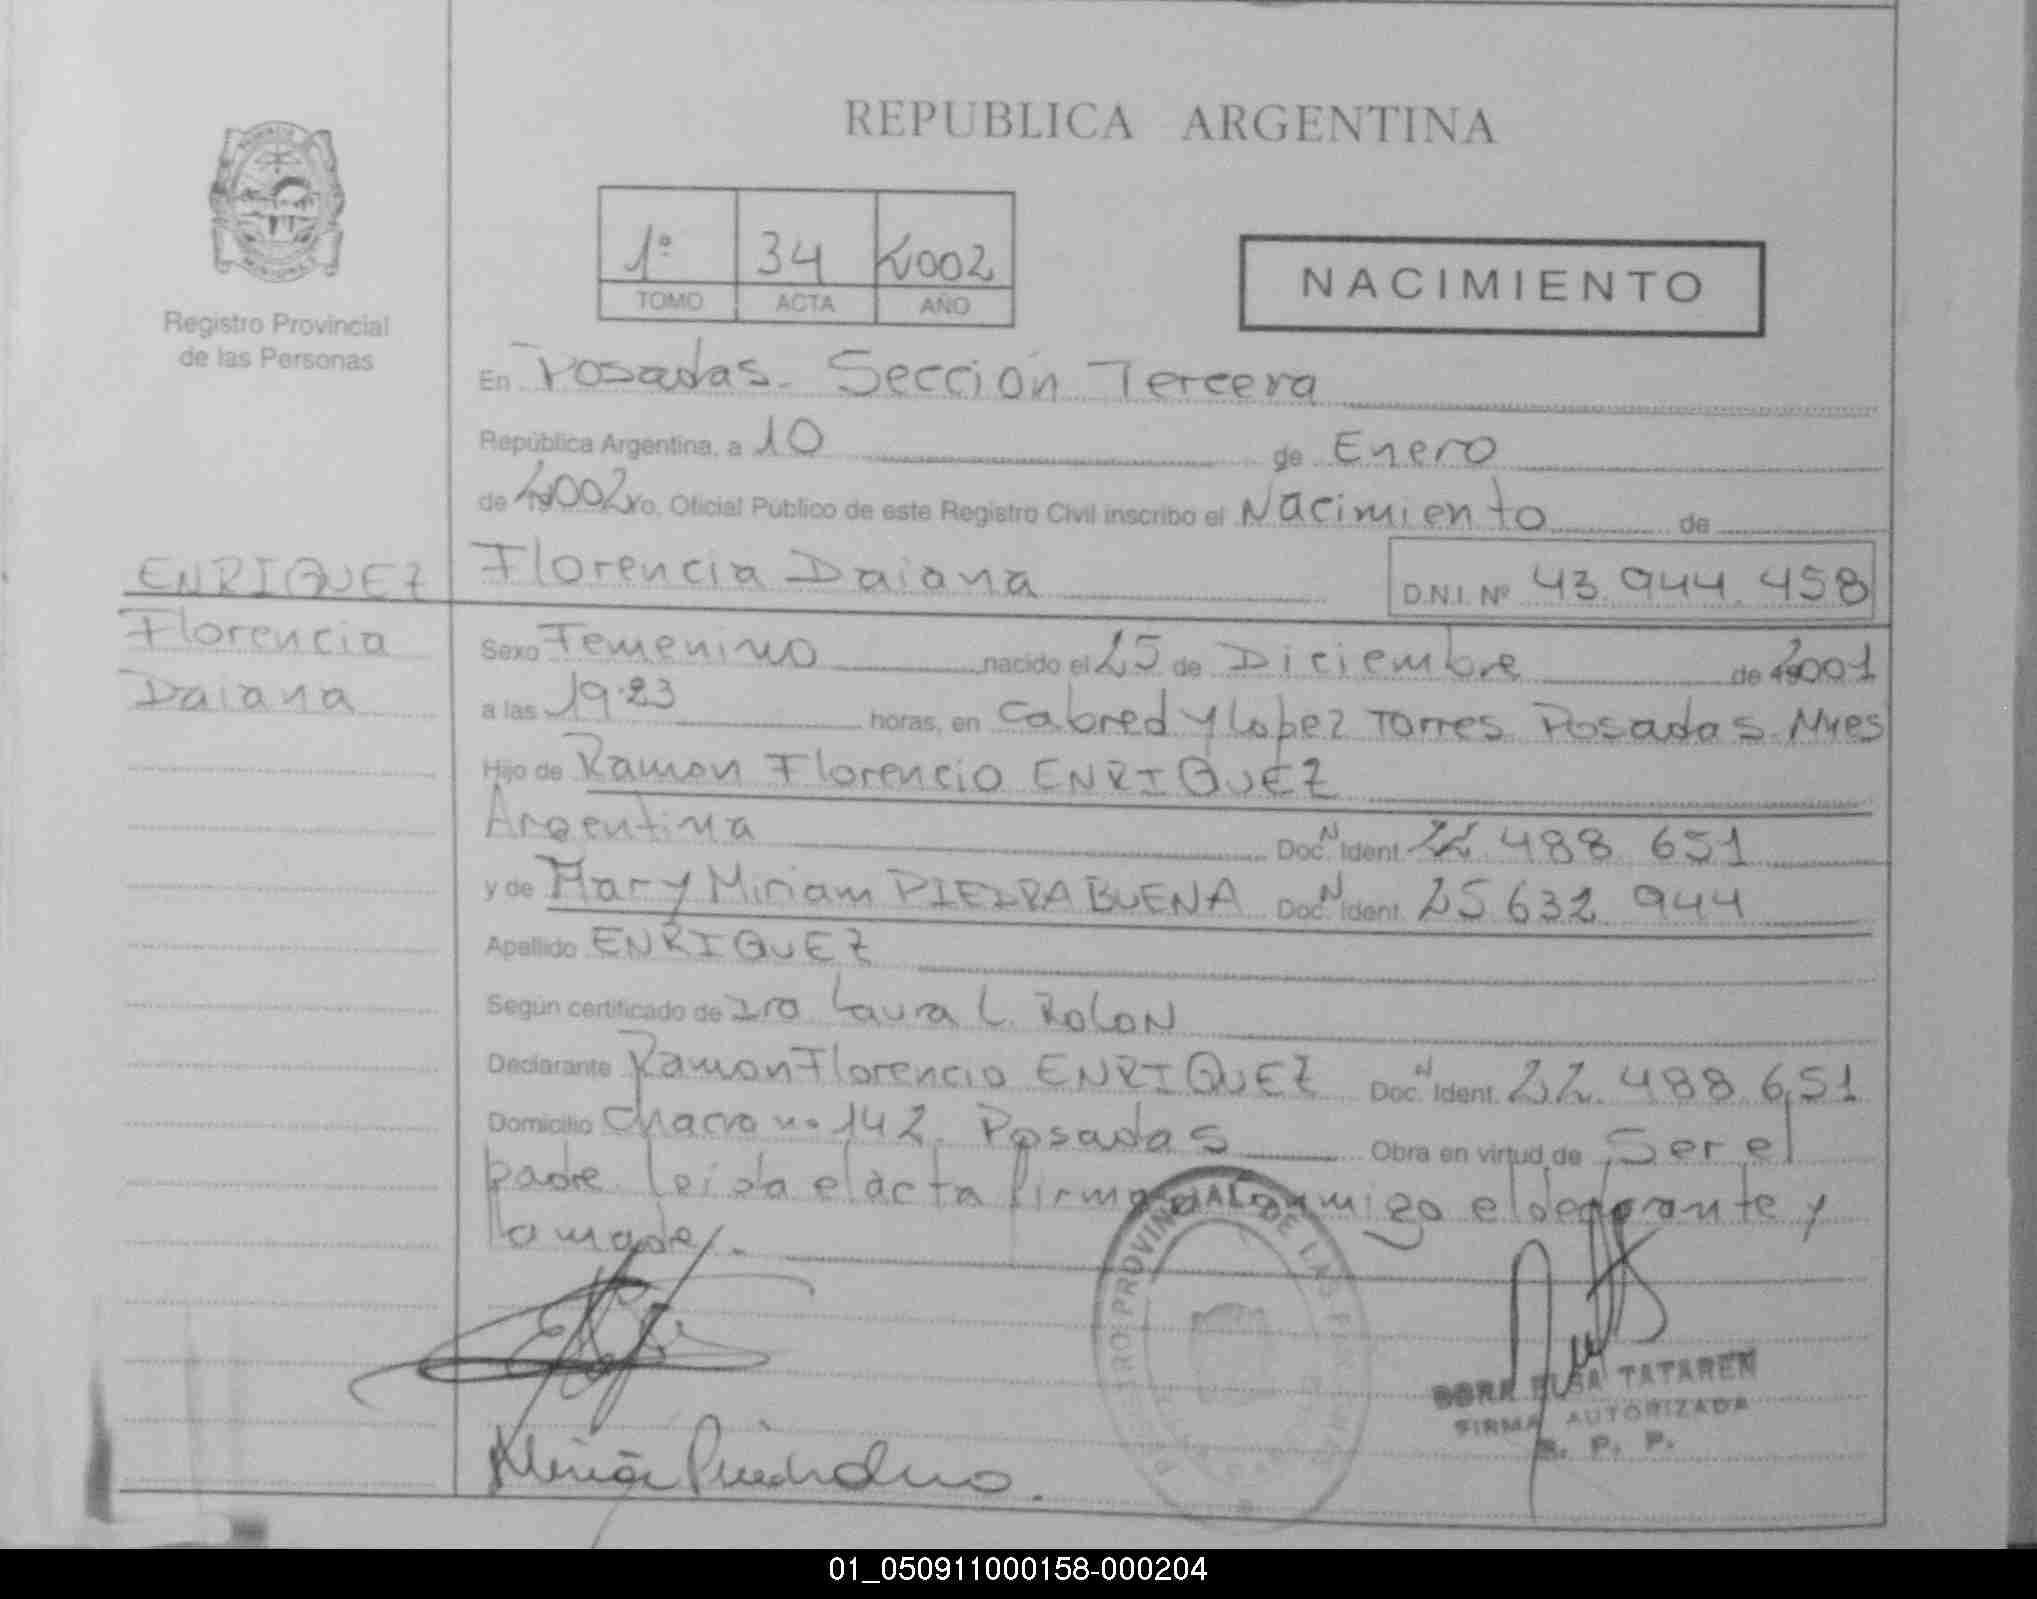 REPUBLICA ARGENTINA
1º 34 2002
TOMO ACTA AÑO
NACIMIENTO
Registro Provincial
de las Personas
En Posadas. Sección Tercera
República Argentina, a 10 de Enero
de 2002 Yo, Oficial Público de este Registro Civil inscribo el Nacimiento de
ENRIQUEZ
Florencia
Daiana
Florencia Daiana D.N.I. Nº 43.944.458
Sexo Femenino nacido el 25 de Diciembre de 2001
a las 19.23 horas, en Cabred y Lopez Torres Posadas Mnes
Hijo de Ramon Florencio ENRIQUEZ
Argentina Doc. N Ident. 22.488.651
y de Mary Miriam PIEDRABUENA Doc. N Ident. 25.632.944
Apellido ENRIQUEZ
Según certificado de Dra Laura L. ROLON
Declarante Ramon Florencio ENRIQUEZ Doc. N Ident. 22.488.651
Domicilio Chacra nº 142. Posadas Obra en virtud de Ser el
padre leida el acta firma conmigo el declarante y
la madre.
PROVINCIAL DE LAS
DORA ELSA TATAREN
FIRMA AUTORIZADA
R. P. P.
01_050911000158-000204